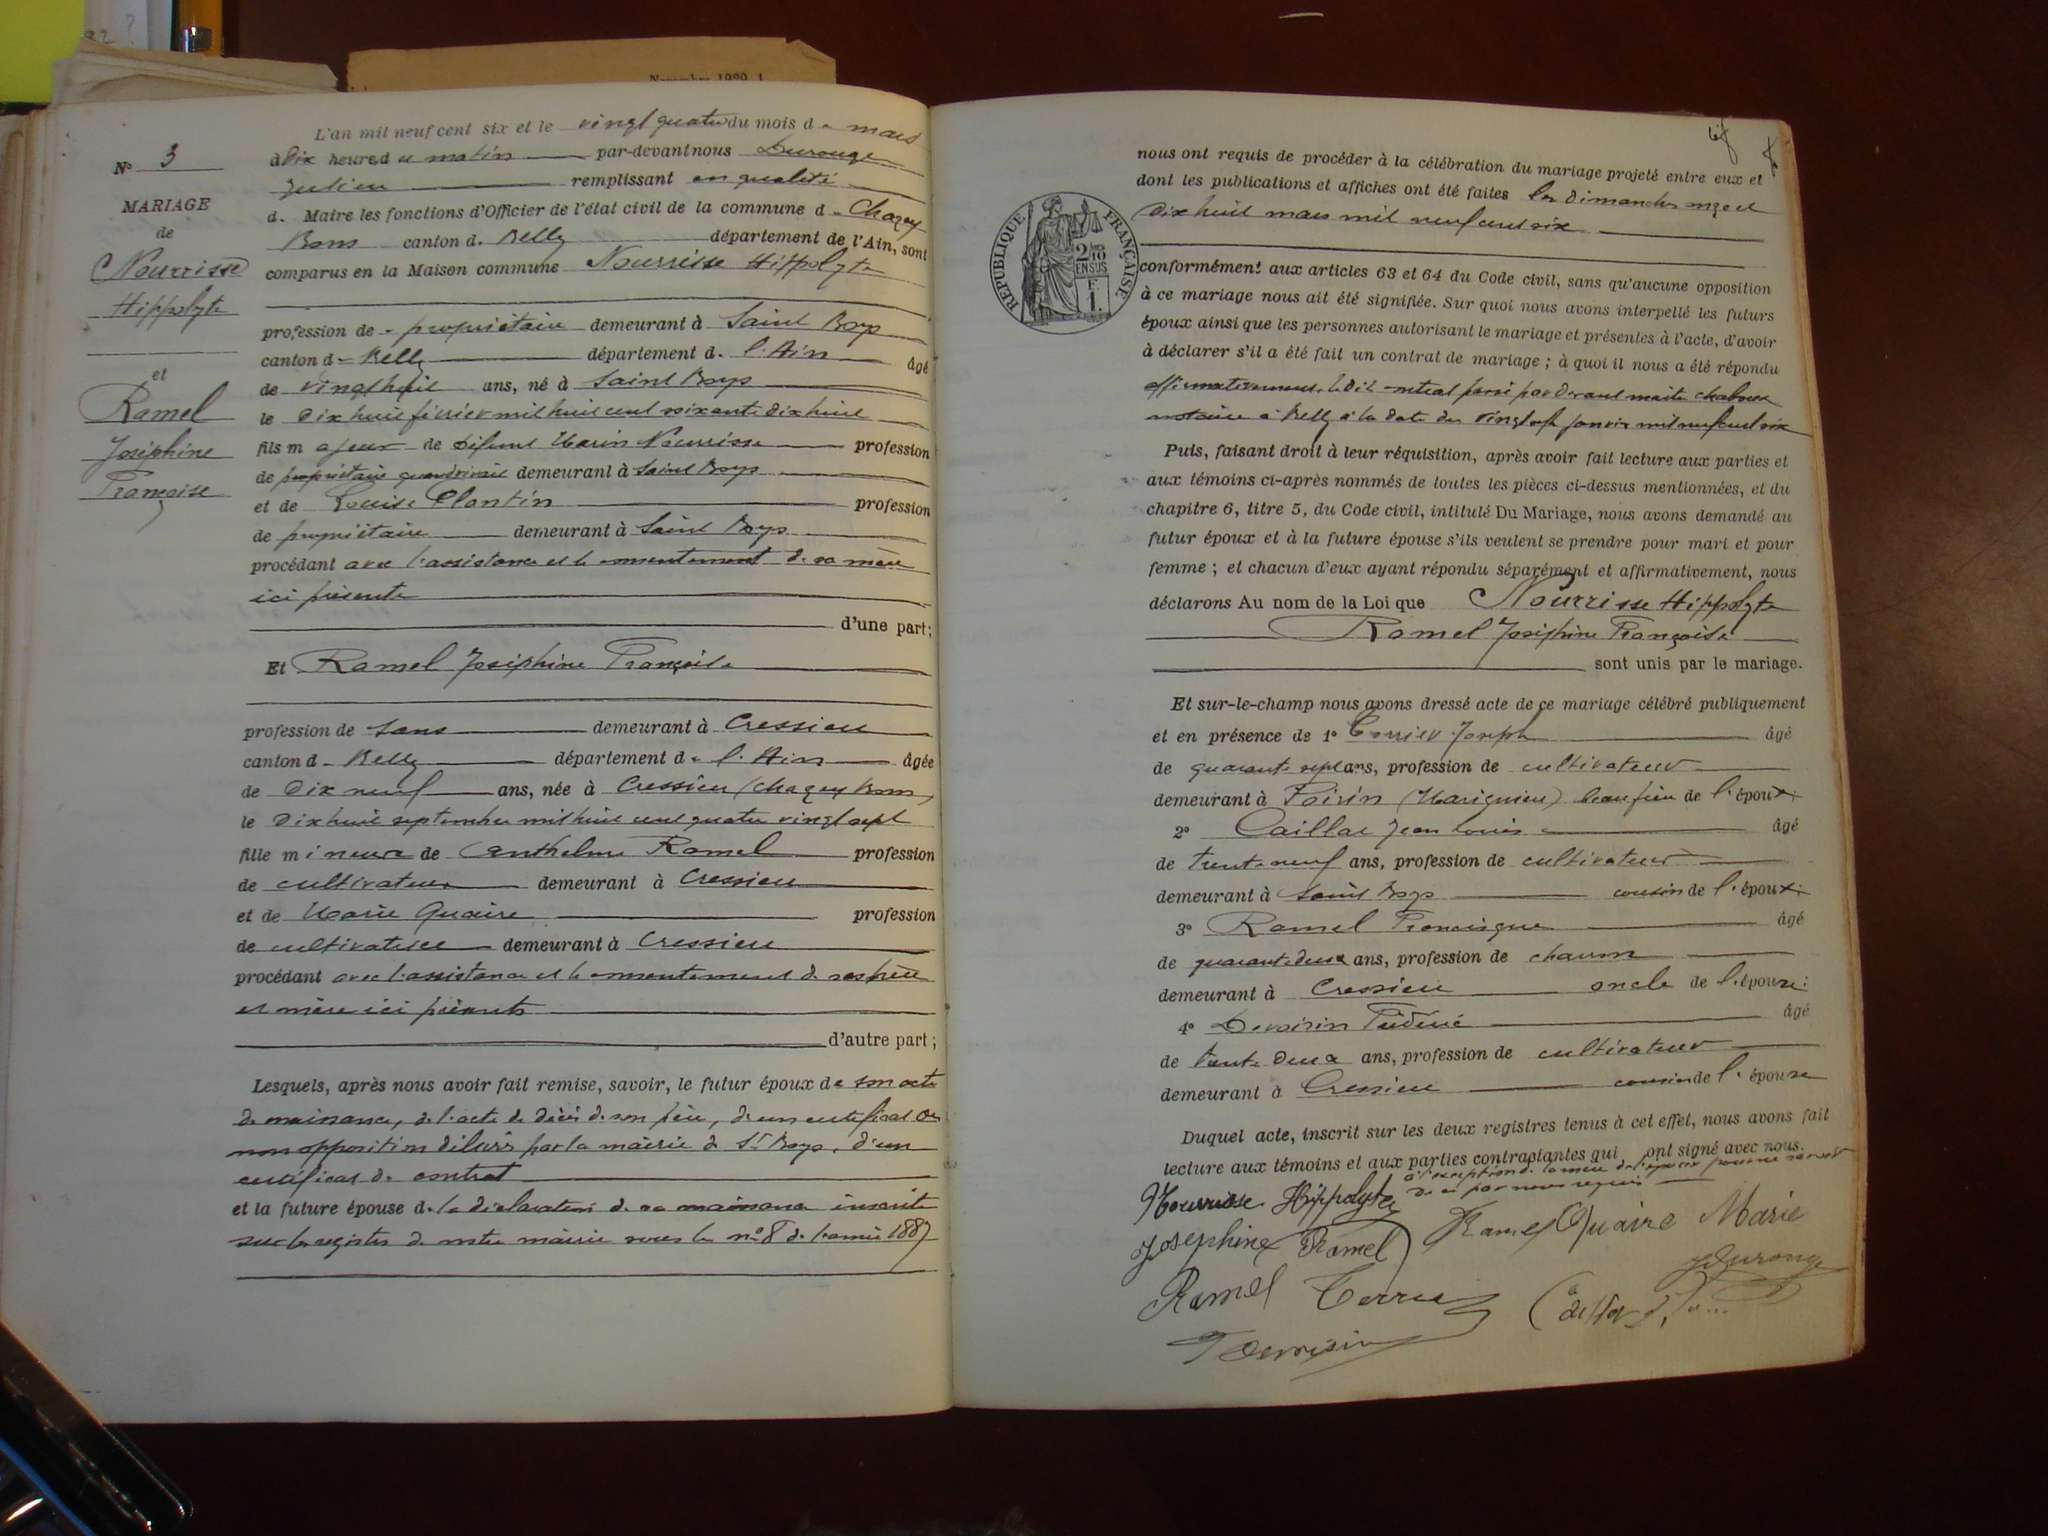 Novembre 1929
Nº 3
MARIAGE
de
Nourrisse
Hippolyte
et
Ramel
Joséphine
Françoise
L'an mil neuf cent six et le vingt quatre du mois de mars
à Dix heures du matin par-devant nous Durouge
Julien remplissant en qualité
de Maire les fonctions d'Officier de l'état civil de la commune de Chazey
Bons canton de Belley département de l'Ain, sont
comparus en la Maison commune Nourrisse Hippolyte
profession de propriétaire demeurant à Saint Boys
canton de Belley département de l'Ain âgé
de vingt huit ans, né à Saint Boys
le Dix huit février mil huit cent soixante dix huit
fils majeur de défunt Marin Nourrisse profession
de propriétaire quand vivait demeurant à Saint Boys
et de Louise Plantin profession
de propriétaire demeurant à Saint Boys
procédant avec l'assistance et le consentement de sa mère
ici présente
d'une part;
Et Ramel Joséphine Françoise
profession de sans demeurant à Cressieu
canton de Belley département de l'Ain âgée
de Dix neuf ans, née à Cressieu (Chazey Bons)
le Dix huit septembre mil huit cent quatre vingt sept
fille mineure de Anthelme Ramel profession
de cultivateur demeurant à Cressieu
et de Marie Quaire profession
de cultivateur demeurant à Cressieu
procédant avec l'assistance et le consentement de ses père
et mère ici présents
d'autre part;
Lesquels, après nous avoir fait remise, savoir, le futur époux de son acte
de naissance, de l'acte de décès de son père, d'un certificat de
non opposition délivré par la mairie de St Boys, d'un
certificat de contrat
et la future épouse de la déclaration de sa naissance inscrite
sur les registres de notre mairie sous le nº 8 de l'année 1887
nous ont requis de procéder à la célébration du mariage projeté entre eux et
dont les publications et affiches ont été faites les Dimanches onze et
Dix huit mars mil neuf cent six
RÉPUBLIQUE FRANÇAISE
2/10 EN SUS
F. 1.
conformément aux articles 63 et 64 du Code civil, sans qu'aucune opposition
à ce mariage nous ait été signifiée. Sur quoi nous avons interpellé les futurs
époux ainsi que les personnes autorisant le mariage et présentes à l'acte, d'avoir
à déclarer s'il a été fait un contrat de mariage; à quoi il nous a été répondu
affirmativement, le dit contrat passé par Devant maître
notaire à Belley à la date du janvier mil neuf cent six
Puis, faisant droit à leur réquisition, après avoir fait lecture aux parties et
aux témoins ci-après nommés de toutes les pièces ci-dessus mentionnées, et du
chapitre 6, titre 5, du Code civil, intitulé Du Mariage, nous avons demandé au
futur époux et à la future épouse s'ils veulent se prendre pour mari et pour
femme; et chacun d'eux ayant répondu séparément et affirmativement, nous
déclarons Au nom de la Loi que Nourrisse Hippolyte
Ramel Joséphine Françoise
sont unis par le mariage.
Et sur-le-champ nous avons dressé acte de ce mariage célébré publiquement
et en présence de 1º Joseph âgé
de quarante sept ans, profession de cultivateur
demeurant à Poirin (Marignieu) beau frère de l'époux
2º Caillat Jean Louis âgé
de trente neuf ans, profession de cultivateur
demeurant à Saint Boys cousin de l'époux
3º Ramel Francisque âgé
de quarante deux ans, profession de charron
demeurant à Cressieu oncle de l'épouse
4º Devoisin Frédéric âgé
de trente deux ans, profession de cultivateur
demeurant à Cressieu cousin de l'épouse
Duquel acte, inscrit sur les deux registres tenus à cet effet, nous avons fait
lecture aux témoins et aux parties contractantes qui ont signé avec nous.
à l'exception de la mère de l'époux pour ne savoir
de ce par nous requis
Nourrisse Hippolyte
Ramel Quaire Marie
Joséphine Ramel
JDurouge
Ramel